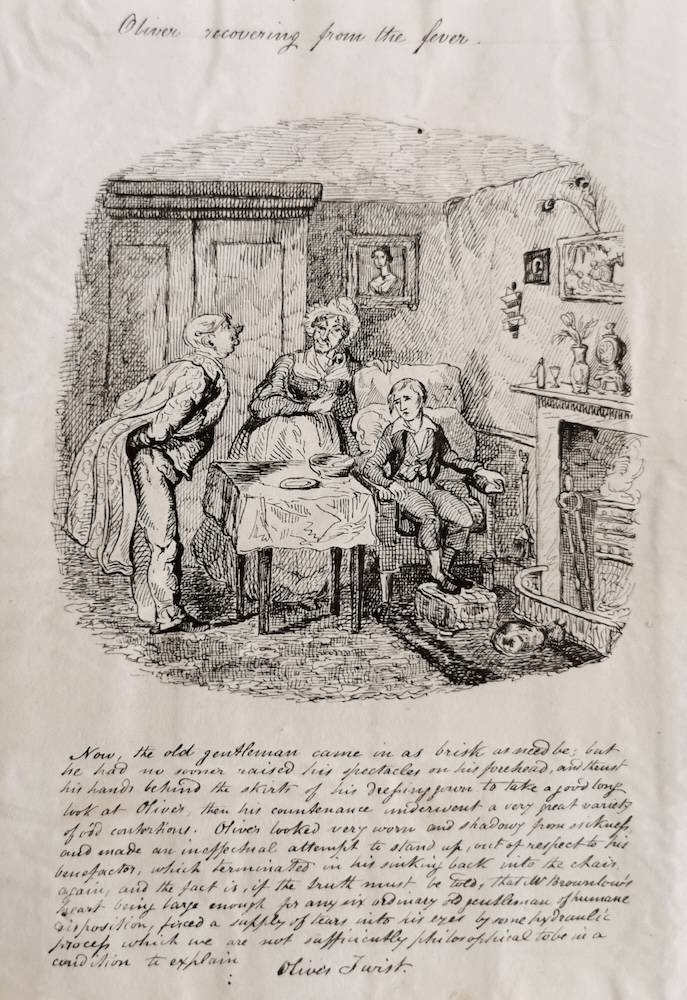 Oliver recovering from the fever.
Now, the old gentleman came in as brisk as need be; but
he had no sooner raised his spectacles on his forehead, and thrust
his hands behind the skirts of his dressing gown to take a good long
look at Oliver, then his countenance underwent a very great variety
of odd contortions. Oliver looked very worn and shadowy from sickness
and made an ineffectual attempt to stand up, out of respect to his
benefactor, which terminated in his sinking back into the chair
again, and the fact is, if the truth must be told, that Mr Brownlow's
heart being large enough for any six ordinary old gentleman of humane
disposition, forced a supply of tears into his eyes by some hydraulic
process which we are not sufficiently philosophical to be in a
condition to explain
Oliver Twist.